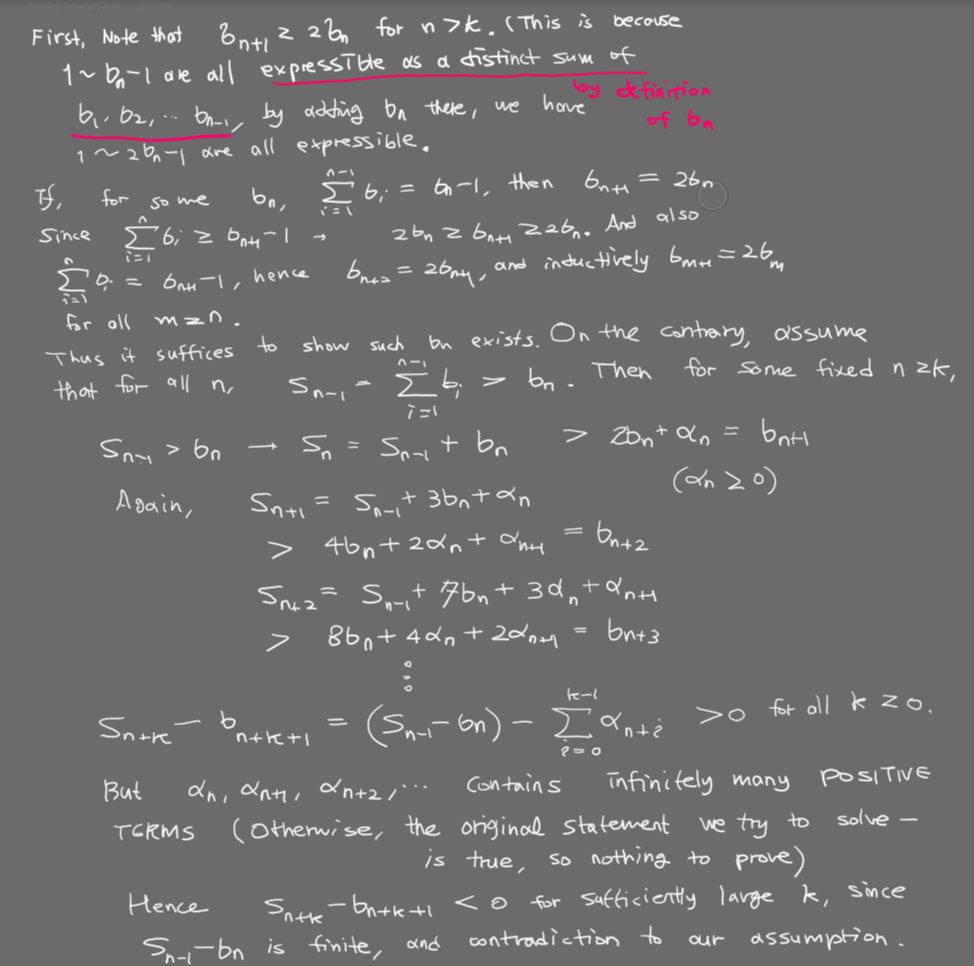 First, Note that b_{n+1} ≥ 2b_n for n > k. (This is because
1 ~ b_n - 1 are all expressible as a distinct sum of
b_1, b_2, ... b_{n-1}, by adding b_n there, we have by definition of b_n
1 ~ 2b_n - 1 are all expressible.
If, for some b_n, \sum_{i=1}^{n-1} b_i = b_n - 1, then b_{n+1} = 2b_n
Since \sum_{i=1}^{n} b_i ≥ b_{n+1} - 1 → 2b_n ≥ b_{n+1} ≥ 2b_n. And also
\sum_{i=1}^{n} b_i = b_{n+1} - 1, hence b_{n+2} = 2b_{n+1}, and inductively b_{m+1} = 2b_m
for all m ≥ n.
Thus it suffices to show such b_n exists. On the contrary, assume
that for all n, S_{n-1} = \sum_{i=1}^{n-1} b_i > b_n. Then for some fixed n ≥ k,
S_{n-1} > b_n → S_n = S_{n-1} + b_n > 2b_n + α_n = b_{n+1}
(α_n ≥ 0)
Again, S_{n+1} = S_{n-1} + 3b_n + α_n
> 4b_n + 2α_n + α_{n+1} = b_{n+2}
S_{n+2} = S_{n-1} + 7b_n + 3α_n + α_{n+1}
> 8b_n + 4α_n + 2α_{n+1} = b_{n+3}
⋮
S_{n+k} - b_{n+k+1} = (S_{n-1} - b_n) - \sum_{i=0}^{k-1} α_{n+i} > 0 for all k ≥ 0.
But α_n, α_{n+1}, α_{n+2}, ... contains infinitely many POSITIVE
TERMS (Otherwise, the original statement we try to solve -
is true, so nothing to prove)
Hence S_{n+k} - b_{n+k+1} < 0 for sufficiently large k, since
S_{n-1} - b_n is finite, and contradiction to our assumption.